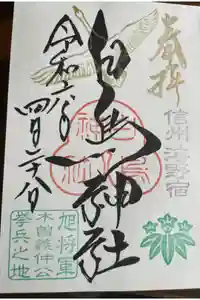 奉拝
信州 海野宿
白鳥神社
令和六年
四月二十八日
旭将軍
木曽義仲公
挙兵之地